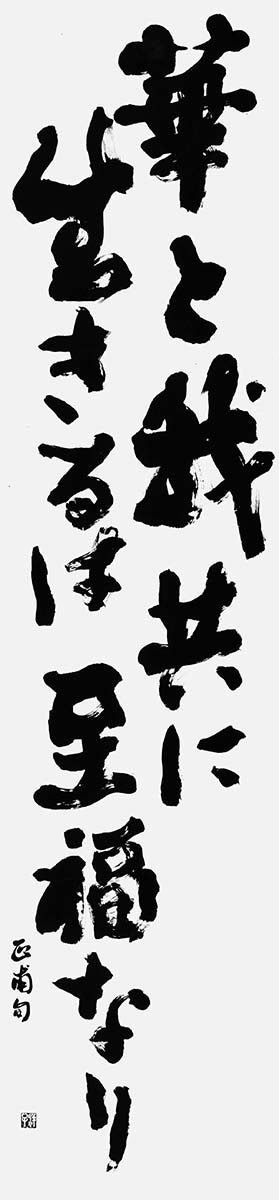 華と我共に
生きるは至福なり
正甫句